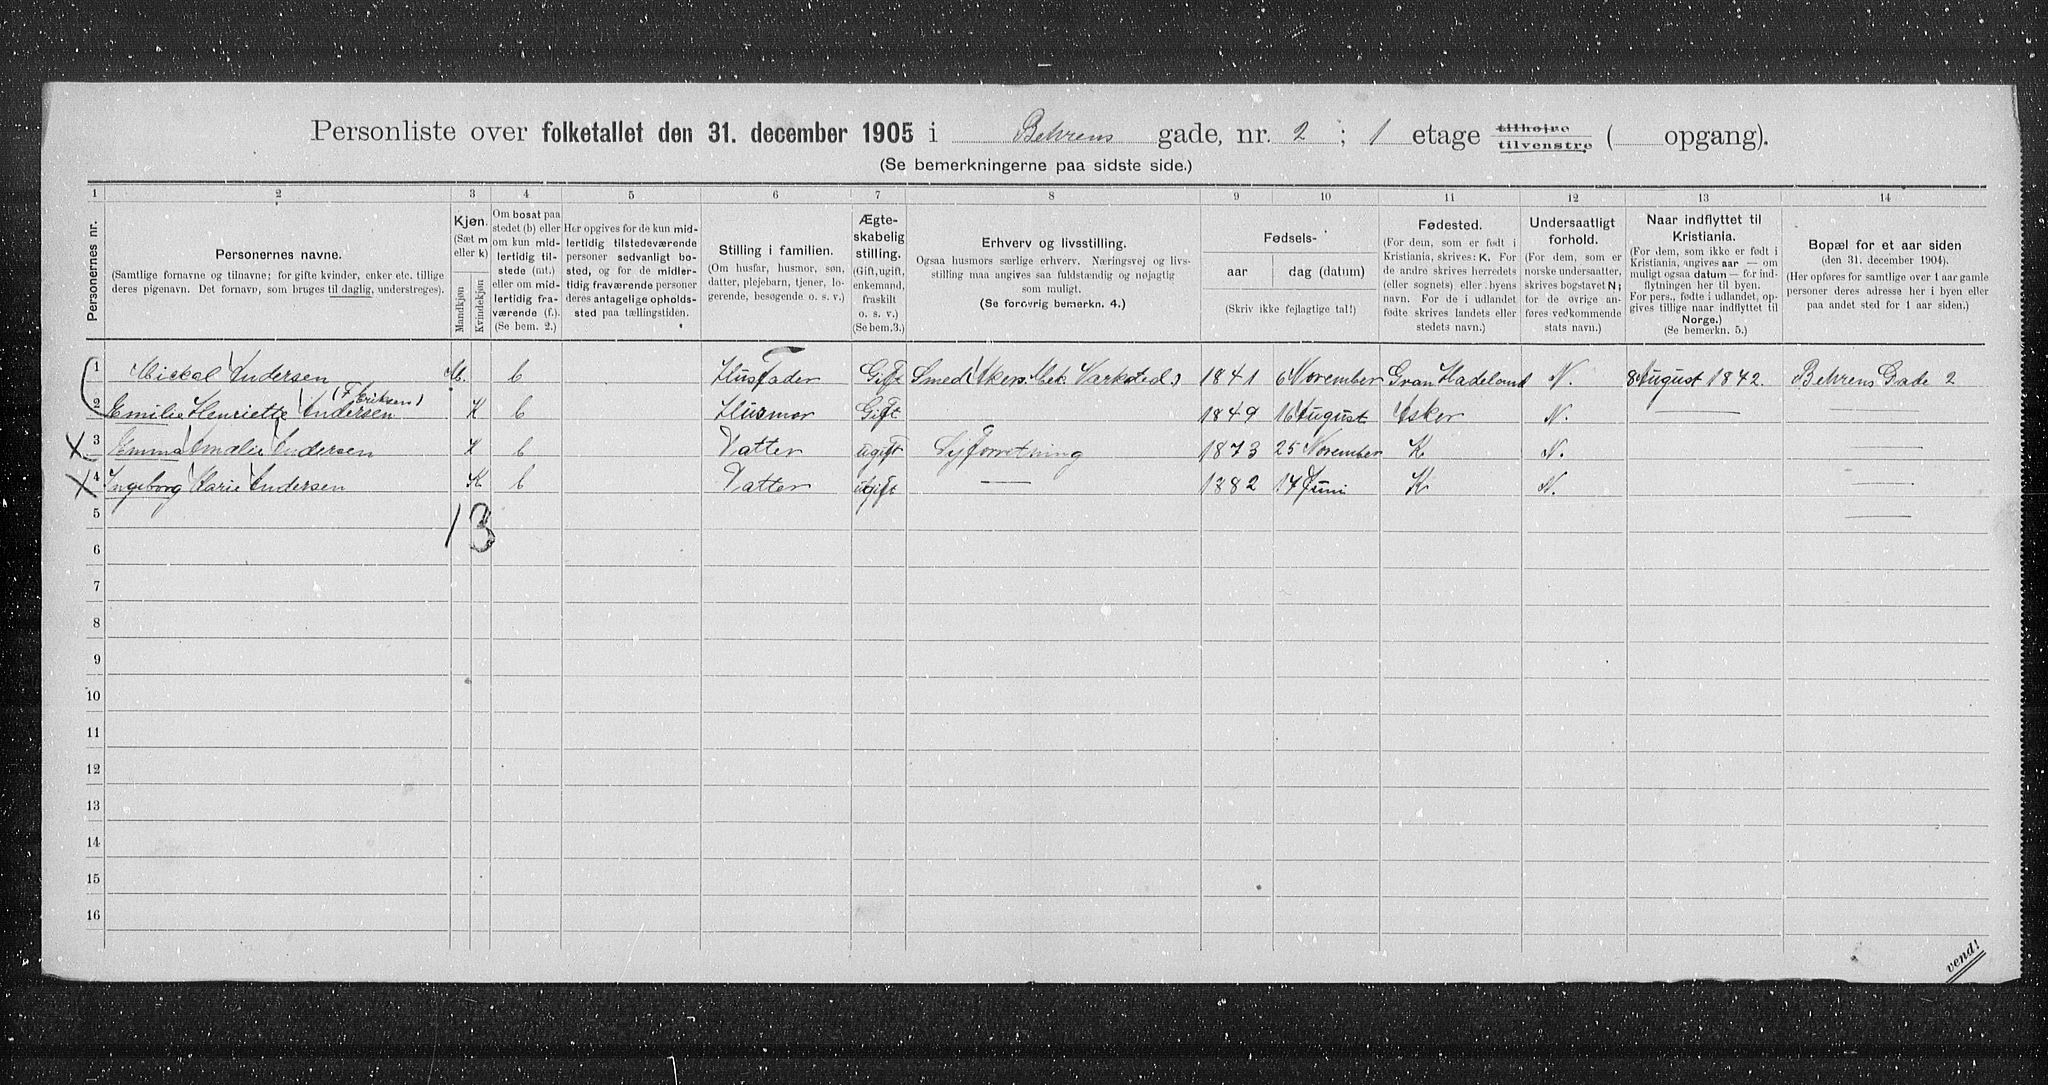 Personliste over folketallet den 31. december 1905 i Behrens gade, nr. 2 ; 1 etage tilhøire tilvenstre ( opgang).
(Se bemerkningerne paa sidste side.)
1 2 3 4 5 6 7 8 9 10 11 12 13 14
Personernes nr.
Personernes navne.
(Samtlige fornavne og tilnavne; for gifte kvinder, enker etc. tillige
deres pigenavn. Det fornavn, som bruges til daglig, understreges).
Kjøn.
(Sæt m
eller k)
Mandkjøn
Kvindekjøn
Om bosat paa
stedet (b) eller
om kun mid-
lertidig til-
stede (mt.)
eller om mid-
lertidig fra-
værende (f.)
(Se bem. 2.)
Her opgives for de kun mid-
lertidig tilstedeværende
personer sedvanlig bo-
sted, og for de midler-
tidig fraværende personer
deres antagelige opholds-
sted paa tællingstiden.
Stilling i familien.
(Om husfar, husmor, søn,
datter, plejebarn, tjener, lo-
gerende, besøgende o. s. v.)
Ægte-
skabelig
stilling.
(Gift, ugift,
enkemand,
fraskilt
o. s. v.)
(Se bem.3.)
Erhverv og livsstilling.
Ogsaa husmors særlige erhverv. Næringsvej og livs-
stilling maa angives saa fuldstændig og nøjagtig
som muligt.
(Se forøvrig bemerkn. 4.)
Fødsels-
aar
dag (datum)
(Skriv ikke fejlagtige tal!)
Fødested.
(For dem, som er født i
Kristiania, skrives: K. For
de andre skrives herredets
(eller sognets) eller byens
navn. For de i udlandet
fødte skrives landets eller
stedets navn.)
Undersaatligt
forhold.
(For dem, som er
norske undersaatter,
skrives bogstavet N;
for de øvrige an-
føres vedkommende
stats navn.)
Naar indflyttet til
Kristiania.
(For dem, som ikke er født i
Kristiania, angives aar — om
muligt ogsaa datum — for ind-
flytningen her til byen.
For pers., fødte i udlandet, op-
gives tillige naar indflyttet til
Norge.)
(Se bemerkn. 5.)
Bopæl for et aar siden
(den 31. december 1904).
(Her opføres for samtlige over 1 aar gamle
personer deres adresse her i byen eller
paa andet sted for 1 aar siden.)
1 Mickal Andersen M. b HusFader Gift Smed Akers Mek Varksted 1841 6 November Gran Hadeland N. 8 August 1842. Behrens Grade 2
(F Eriksen)
2 Emilie Henriette Andersen K b Husmor Gift 1849 16 August Asker N. — —
3 Emma Amalie Andersen K b Datter ugift Syforretning 1873 25 November K N. —
4 Ingeborg Marie Andersen K b Datter ugift — 1882 14 Juni K N. —
5 —
1 3
6
7
8
9
10
11
12
13
14
15
16
vend!